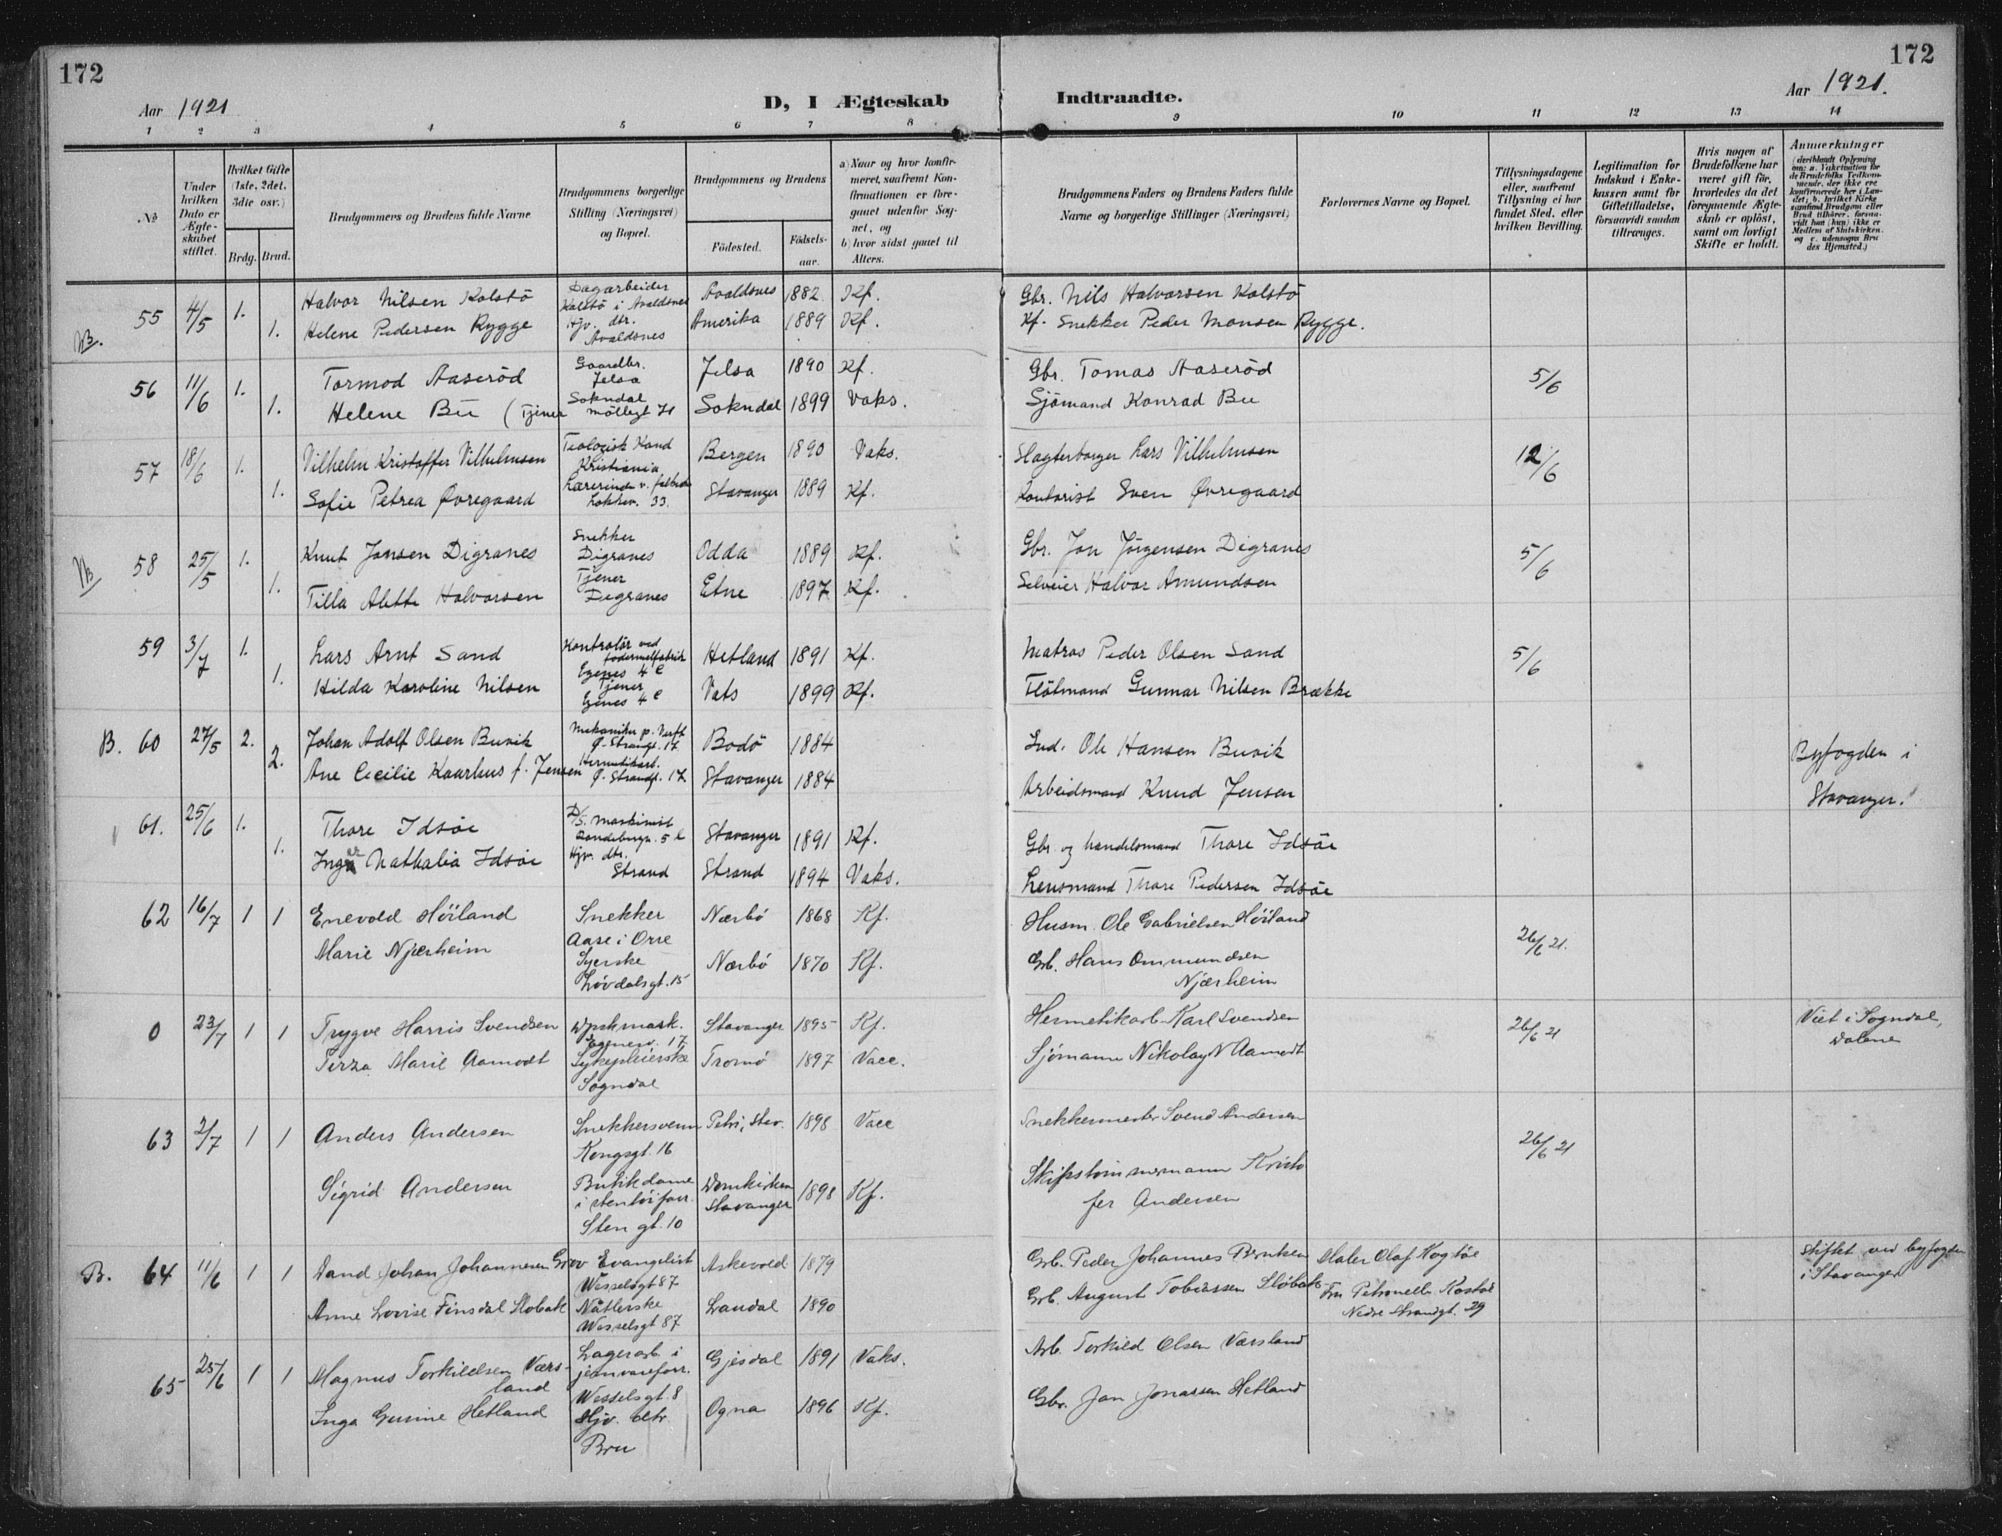 172
172
Aar 1921
D, I Ægteskab Indtraadte.
Aar 1921.
1 2 3 4 5 6 7 8 9 10 11 12 13 14
No
Under hvilken Dato er Ægteskabet stiftet.
Hvilket Gifte (1ste, 2det, 3die osv.)
Brdg. Brud.
Brudgommens og Brudens fulde Navne
Brudgommens borgerlige Stilling (Næringsvei) og Bopæl.
Brudgommens og Brudens
Fødested. Fødselsaar.
a) Naar og hvor konfirmeret, saafremt Konfirmationen er foregaaet udenfor Sognet, og
b) hvor sidst gaaet til Alters.
Brudgommens Faders og Brudens Faders fulde Navne og borgerlige Stillinger (Næringsvei)
Forlovernes Navne og Bopæl.
Tillysningsdagene eller, saafremt Tillysning ei har fundet Sted, efter hvilken Bevilling.
Legitimation for Indskud i Enkekassen samt for Giftetilladelse, forsaavidt saadan tiltrænges.
Hvis nogen af Brudefolkene har været gift før, hvorledes da det foregaaende Ægteskab er opløst, samt om lovligt Skifte er holdt.
Anmerkninger
(deriblandt Oplysning om: a. Vakcination for de Brudefolks Vedkommende, der ikke ere konfirmerede her i Landet; b. hvilket Kirkesamfund Brudgom eller Brud tilhører, forsaavidt han (hun) ikke er Medlem af Statskirken, og c. udensogns Brudes Hjemsted.)
55 4/5 1. Halvor Nilsen Kolstö Dagarbeider Kolstö i Avaldsnes Avaldsnes 1882 Kf. Gbr. Nils Halvorsen Kolstö
1. Helene Pedersen Rygge Hjv. dtr. Avaldsnes Amerika 1889 Kf. Kf. Snekker Peder Monsen Rygge.
56 11/6 1. Tormod Aaseröd Gaardbr. Jelsa Jelsa 1890 Kf. Gbr. Tomas Aaseröd 5/6
1. Helene Bu (Tjener Sokndal Möllegt 71 Sokndal 1899 Vaks. Sjömand Konrad Bu
57 18/6 1. Vilhelm Kristoffer Vilhelmsen Teologisk Kand Kristiania Bergen 1890 Vaks. Slagterborger Lars Vilhelmsen 12/6
1. Sofie Petrea Øvregaard Lærerinde v. 33. Stavanger 1889 Kf. Kontorist Sven Øvregaard
58 25/5 1. Knut Jonsen Digranes Snekker Digranes Odda 1889 Kf. Gbr. Jon Jörgensen Digranes 5/6
1. Tilla Alette Halvorsen Tjener Digranes Etne 1897 Kf. Selveier Halvor Amundsen
59 3/7 1. Lars Arnt Sand Kontrolör ved Egenes 4 c Hetland 1891 Kf. Matros Peder Olsen Sand 5/6
1. Hilda Karoline Nilsen Tjener Egenes 4 c Vats 1899 Kf. Flötmand Gunnar Nilsen Brække
B. 60 27/5 2. Johan Adolf Olsen Buvik Mekaniker p. Verft Ø. Strandgt. 17 Bodö 1884 Ind. Ole Hansen Buvik Byfogden i
2. Ane Cecilie Kaarhus f. Jensen Ø. Strandgt. 17. Stavanger 1884 Arbeidsmand Knud Jensen Stavanger.
61. 25/6 1. Thore Idsöe D/S. Maskinist 5 c Stavanger 1891 Kf. Gbr og handelsmand Thore Idsöe
1. Inger Nathalia Idsöe Hjv. dtr. Strand Strand 1894 Vaks. Lensmand Thore Pedersen Idsöe
62 16/7 1 1 Enevold Höiland Snekker Aase i Orre Nærbö 1868 Kf. Husm. Ole Gabrielsen Höiland 26/6 21.
Marie Njærheim Syerske Lövdalsgt. 15 Nærbö 1870 Kf. Grb. Hans Ommundsen Njærheim
0 23/7 1 1 Trygve Harris Svendsen 17 Stavanger 1895 Kf. Hermetikarb. Karl Svendsen 26/6 21 Viet i Sogndal, Dalene
Tirza Marie Aamodt Sykepleierske Sogndal Tromö 1897 Vacc. Sjömann Nikolay N Aamodt
63 2/7 1 1 Anders Andersen Snekkersvenn Kongsgt. 16 Petri, Stav. 1898 Vacc Snekkermester Svend Andersen 26/6 21
Sigrid Andersen Butikdame i Stentöiforr. Sten gt. 10 Domkirken Stavanger 1898 Kf. Skipstömmermann Kristofer Andersen
B. 64 11/6 1 1 Johan Johannesen Grov Evangelist Wesselsgt 87 Askevold 1879 Grb. Peder Johannes Maler Olaf Stiftet ved byfogden i Stavanger
Anne Lovise Finsdal Slobak Nätlerske Wesselsgt 87 Laudal 1890 Grb. August Tobiassen Fru Petronelle Nedre Strandgt. 29
65 25/6 1 1 Magnus TorkildsenVærsland Lagerarb. i jernvareforr. Wesselsgt. 8 Gjesdal 1891 Vaks. Arb. Torkild Olsen Værsland
Inga Gurine Hetland Hjv. dtr. Bru Ogna 1896 Kf. Gbr. Jan Jonassen Hetland